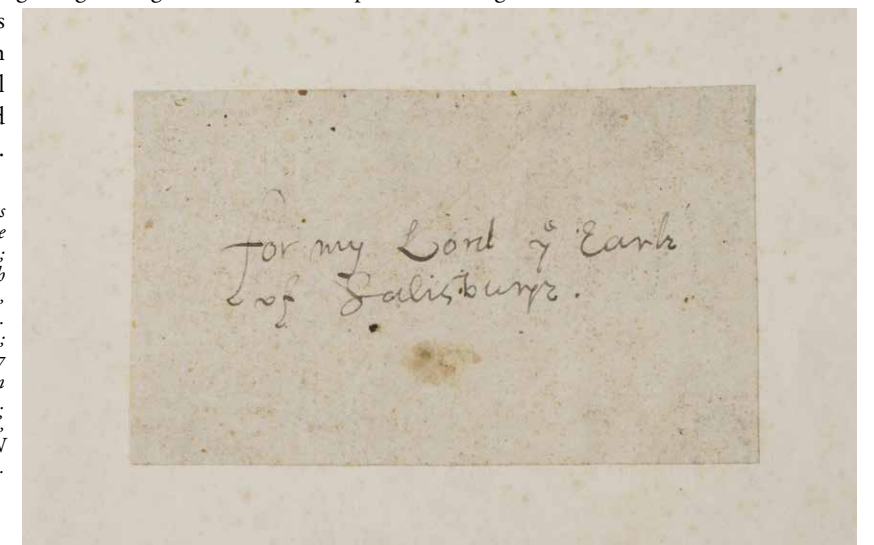 for my Lord yͤ Earle
of Salisburye.